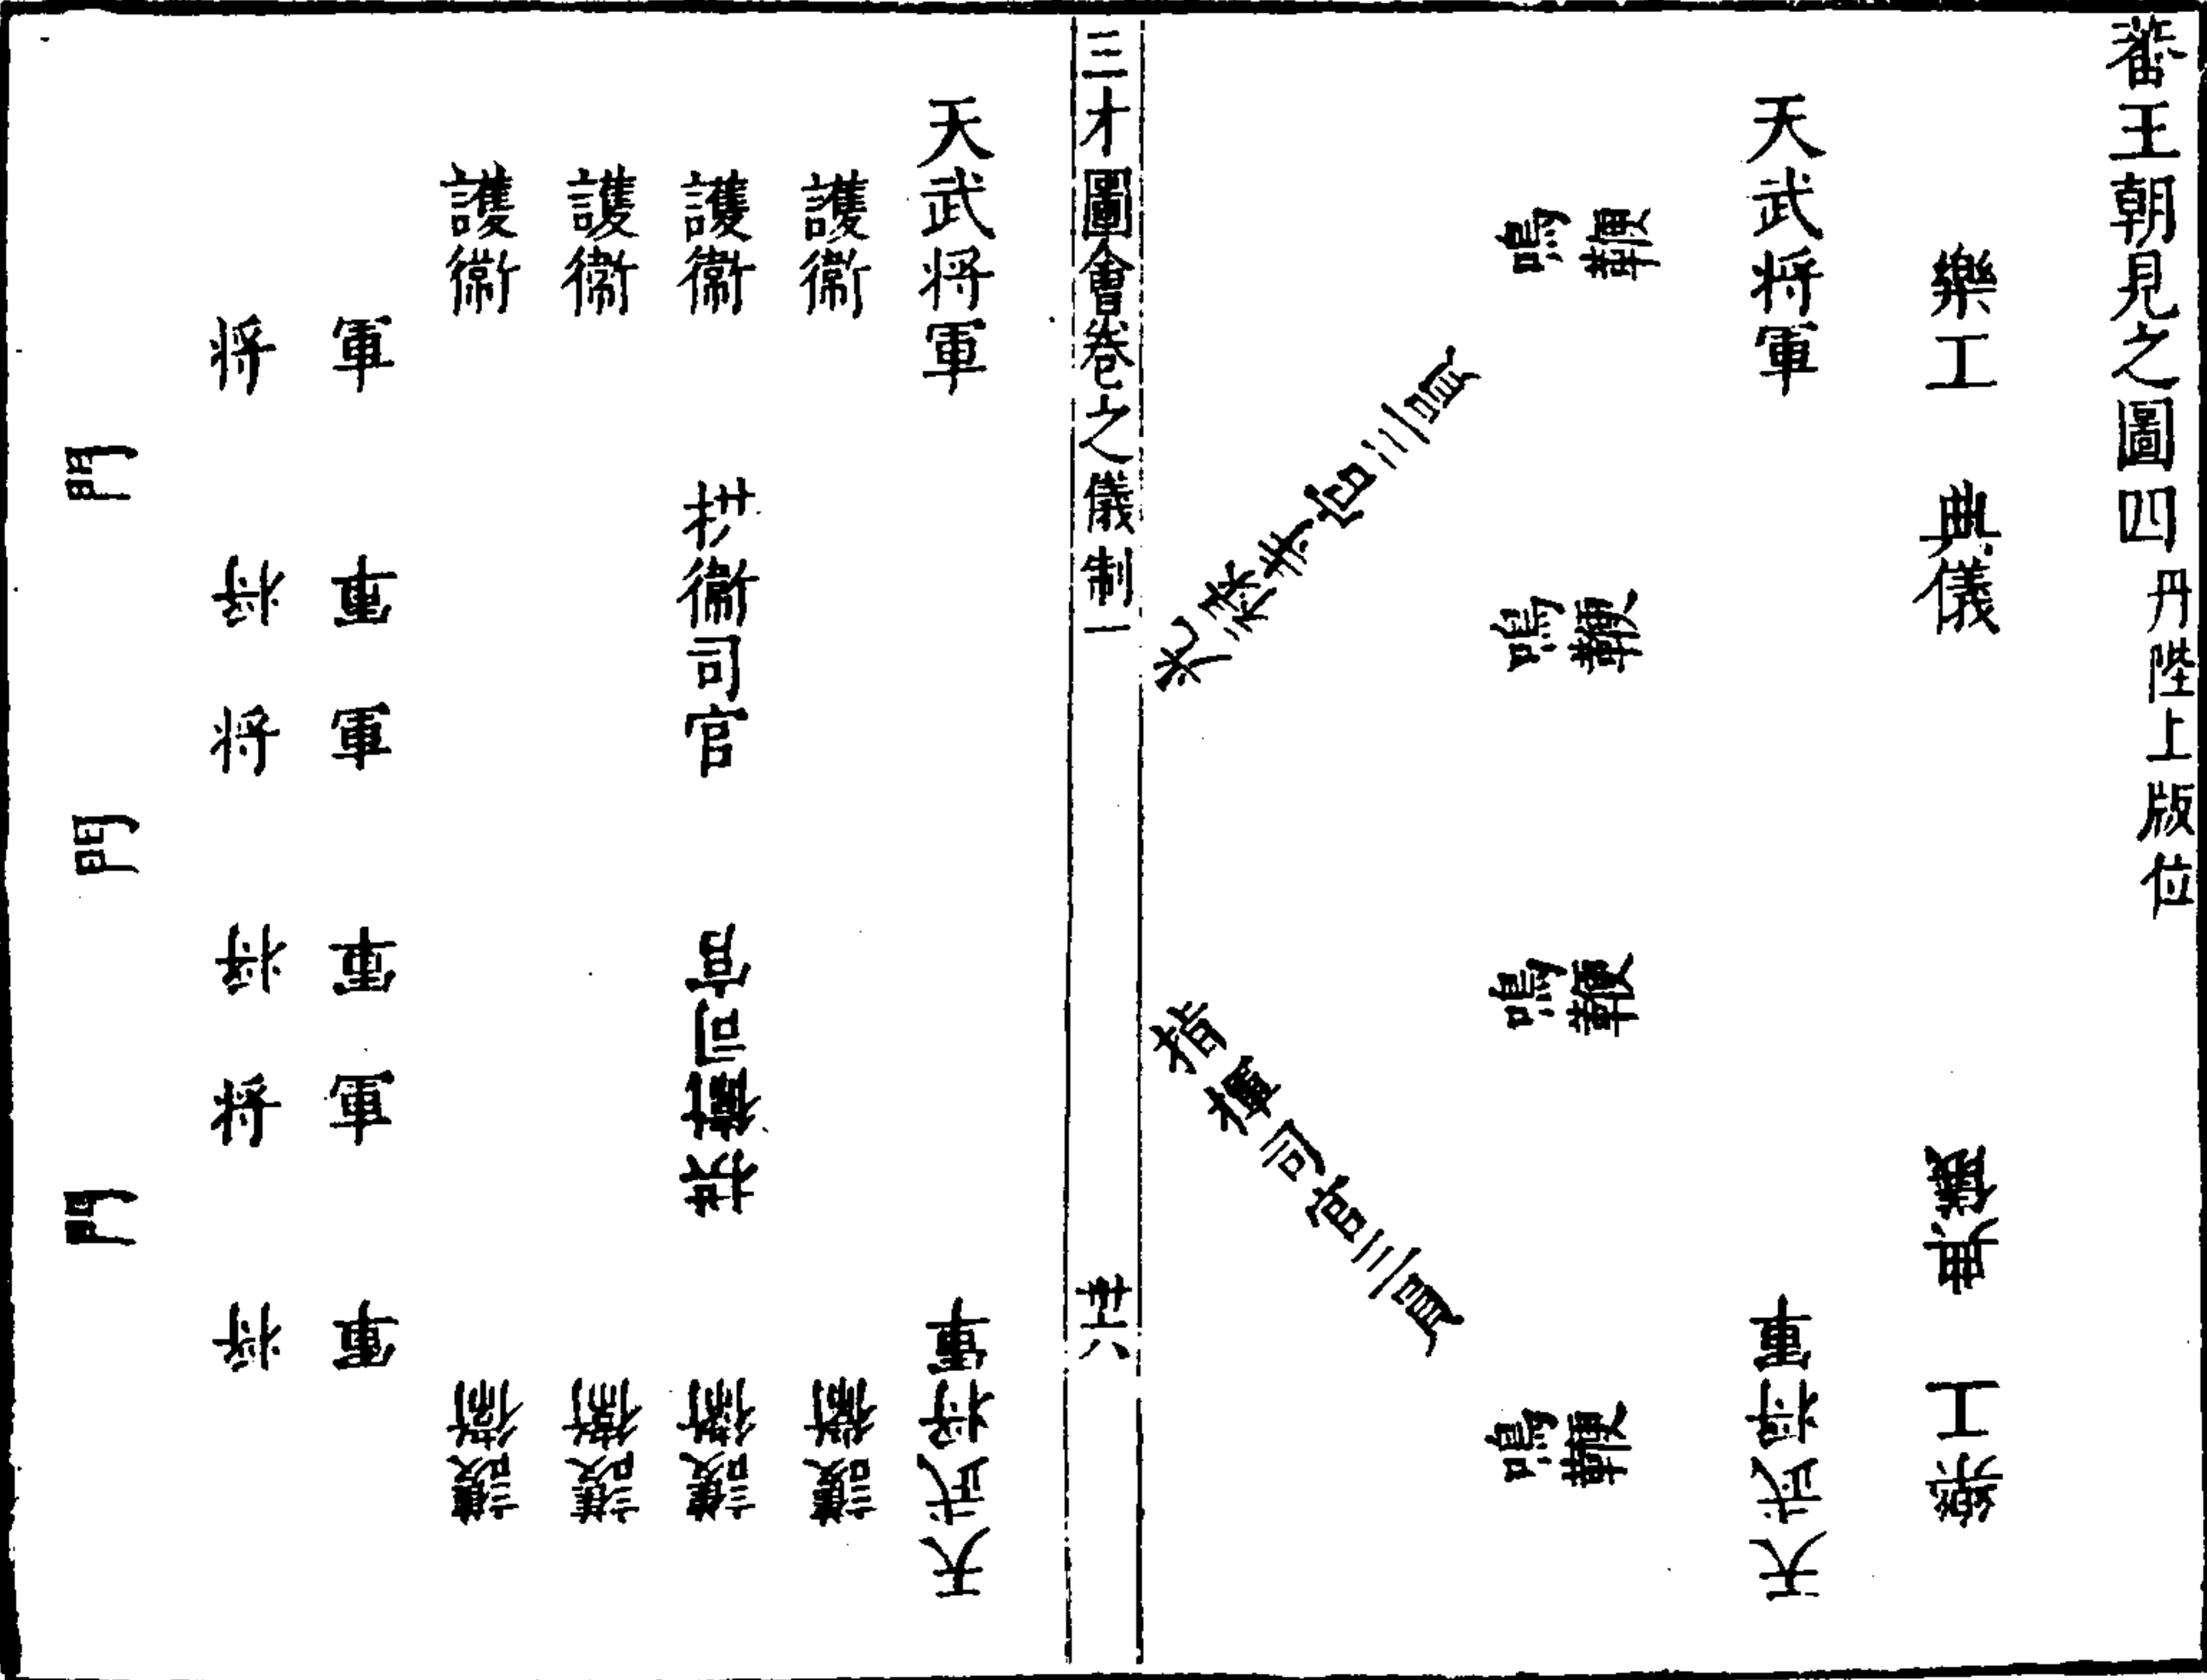 蕃王朝見之圖四 丹陛上版位
樂工
典儀
典儀
樂工
天武将軍
天武将軍
鳴鞭
鳴鞭
鳴鞭
鳴鞭
光祿寺官三員
指揮司官三員
三才圖會卷之儀制一
丗六
天武将軍
天武将軍
護衞
護衞
護衞
拱衞司官
拱衞司官
護衞
護衞
護衞
護衞
護衞
将軍
将軍
将軍
将軍
将軍
将軍
門
門
門